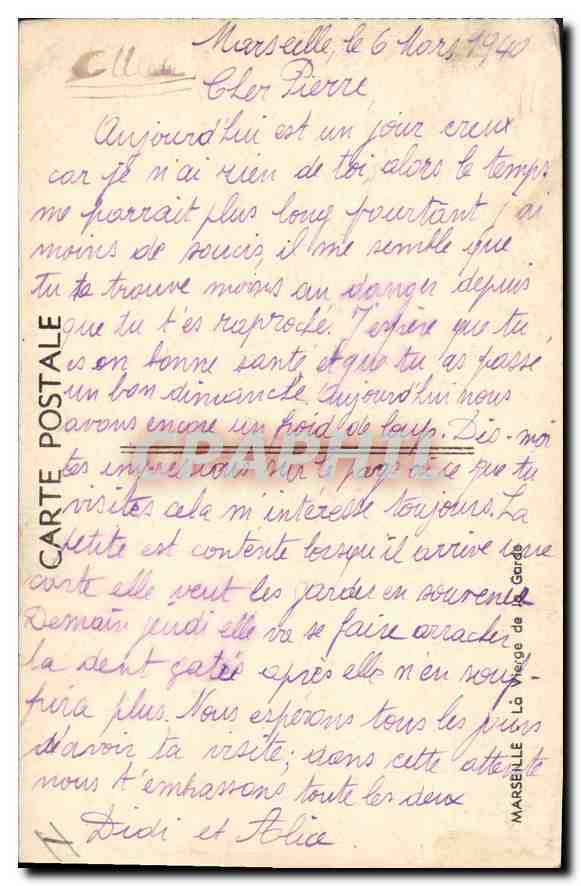 Marseille, le 6 Mars 1940
Cher Pierre,
Aujourd'hui est un jour creux
car je n'ai rien de toi, alors le temps
me parrait plus long pourtant j'ai
moins de soucis, il me semble que
tu te trouve moins au danger depuis
que tu t'es raproché. J'espère que tu
es en bonne santé et que tu as passé
un bon dimanche. Aujourd'hui nous
avons encore un froid de loup. Dis-moi
tes impressions sur le pays et ce que tu
visites cela m'intéresse toujours. La
petite est contente lorsqu'il arrive une
carte elle veut les garder en souvenir
Demain jeudi elle va se faire arracher
la dent gatée après elle n'en souf-
frira plus. Nous espérons tous les jours
d'avoir ta visite; dans cette attente
nous t'embrassons toute les deux
Didi et Alice
CARTE POSTALE
MARSEILLE La Vierge de la Garde
CPAPHIL